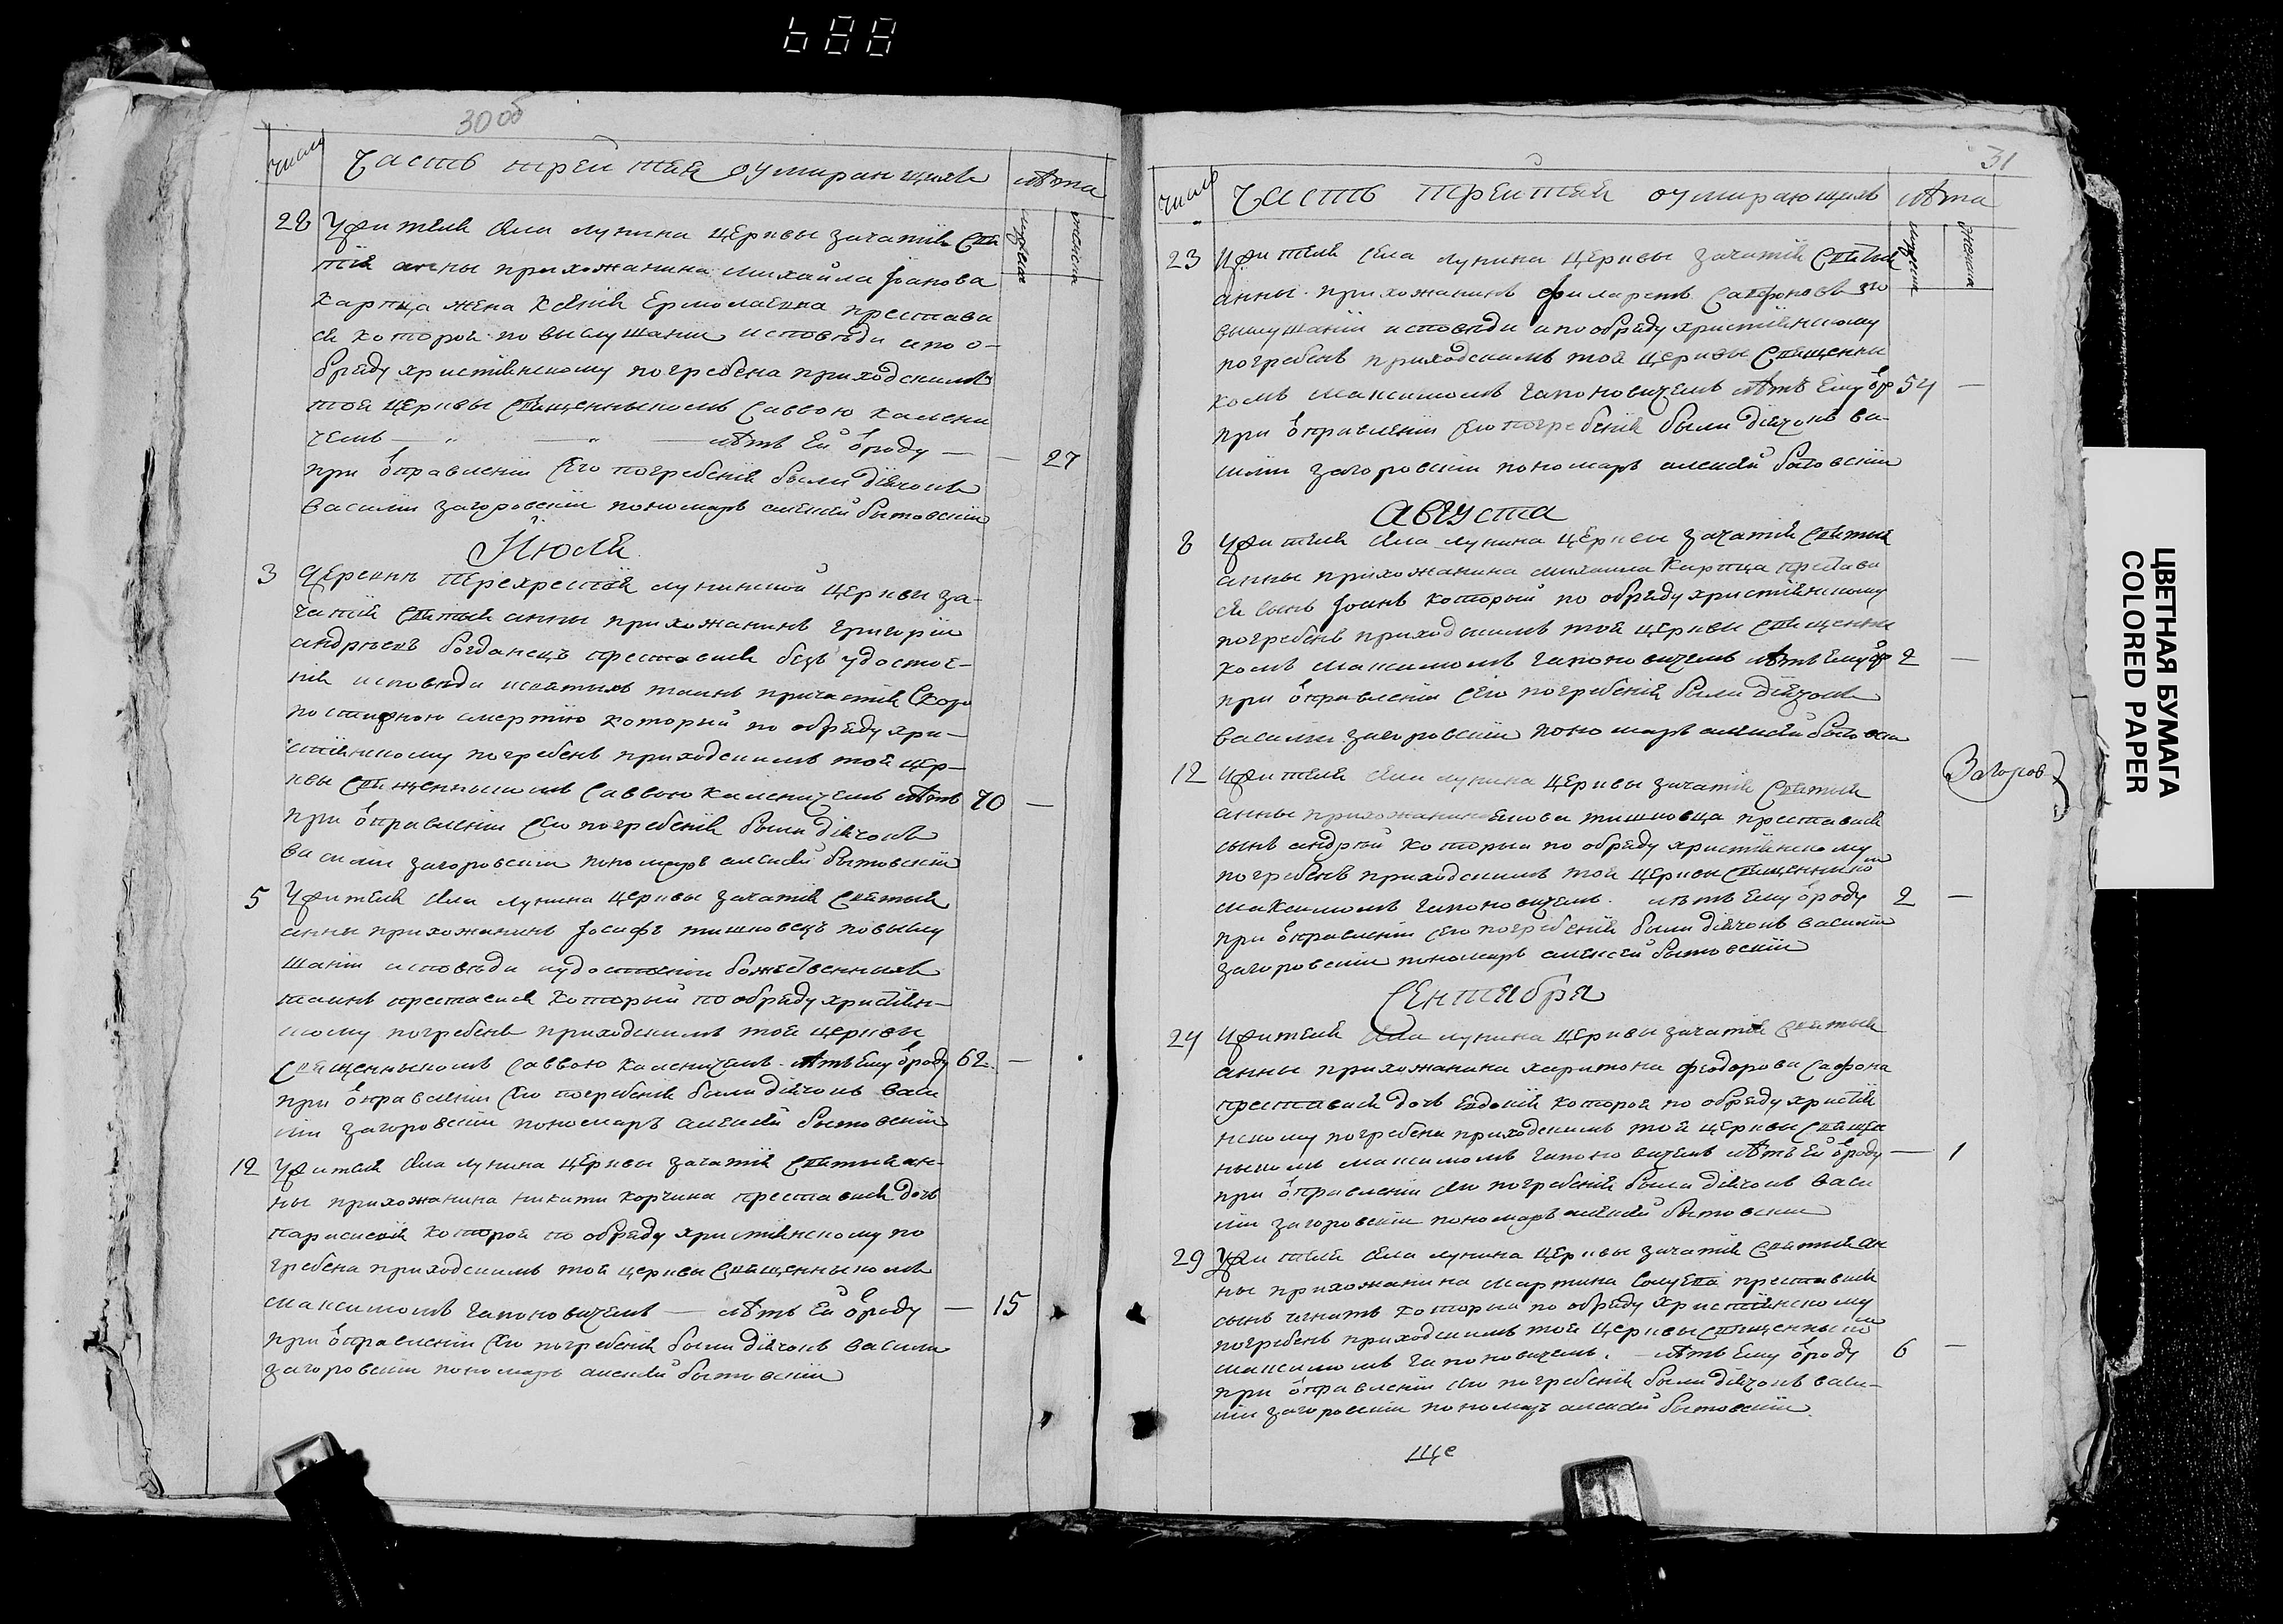 30 об
число Часть трейтая оумирающихъ лѣта
мужеска женска
28 Жителя села лунина церквы зачатія свя
тыя анны прихожанина михаила Іоанова
карпца жена Ксенія Ермолаевна престави
ся которой по выслушаніи исповѣди и по о-
бряду христіянскому погребена приходскимъ
тоя церквы священныкомъ Саввою калени
чемъ — „ — „ лѣтъ Ей ѿроду — — 27
при ѿправленіи Его погребенія были діячокъ
василій загоровскій пономаръ алексій бытовскій
Июля
3 перехрестья лунинской церквы за-
чатія святыя анны прихожанинъ григорій
андрѣевъ богданецъ преставися безъ удостое-
нія исповѣди исвятыхъ таинъ причастія Скоро
постижною смертію который по обряду хри-
стіянскому погребенъ приходскимъ той цер-
квы священныкомъ Саввою каленичемъ лѣтъ 70 —
при ѿправленіи Его погребенія были діячокъ
василій загоровскій пономаръ алексій бытовскій
5 Жителя села лунина церквы зачатія святыя
анны прихожанинъ Іосифъ тишковецъ по выслу
шаніи исповѣди иудостоеніи божественныхъ
таинъ преставися который по обряду христіян-
скому погребенъ приходскимъ той церквы
священныкомъ Саввою каленичемъ. лѣтъ Ему ѿроду 62. —
при ѿправленіи Его погребенія были діячокъ васи
лій загоровскій пономаръ алексій бытовскій
12 Жителя села лунина церквы зачатія святыя ан-
ны прихожанина никити корчика преставися дочь
параскевія которая по обряду христіянскому по
гребена приходскимъ той церквы священныкомъ
максимомъ гапоновичемъ — лѣтъ Ей ѿроду — 15
при ѿправленіи Его погребенія были діячокъ василій
загоровскій пономаръ алексій бытовскій
31
число Часть трейтая оумирающихъ лѣта
мужеска женска
23 Жителя села лунина церквы зачатія святыя
анны прихожанинъ филаретъ Сафоновъ по
выслушаніи исповѣди и по обряду христіянскому
погребенъ приходскимъ той церквы священны
комъ максимомъ гапоновичемъ лѣтъ Ему ѿр 54 —
при ѿправленіи Его погребенія были діячокъ ва-
силій загоровскій пономаръ алексій бытовскій
Августа
8 Жителя села лунина церквы зачатія святыя
анны прихожанина михаила карпца престави
ся сынъ Іоанъ который по обряду христіянскому
погребенъ приходскимъ той церквы священны
комъ максимомъ гапоновичемъ лѣтъ Ему ѿр 2 —
при ѿправленіи Его погребенія были діячокъ
василій загоровскій пономаръ алексій бытовски
12 Жителя села лунина церквы зачатія святыя
анны прихожанина якова тишковца преставися
сынъ андрей который по обряду христіянскому
погребенъ приходскимъ той церквы священныком
максимомъ гапоновичемъ. лѣтъ Ему ѿроду 2 —
при ѿправленіи Его погребенія были діячокъ василій
загоровскій пономаръ алексей бытовскій
Загоров
Сентября
24 Жителя села лунина церквы зачатія святыя
анны прихожанина харитона феодорова сафона
преставися дочь Евдокія которая по обряду христія
нскому погребена приходскимъ той церквы священ
ныкомъ максимомъ гапоновичемъ лѣтъ Ей ѿроду — 1
при ѿправленіи Его погребенія были діячокъ васи
лій загоровскій пономаръ алексій бытовскій
29 Жителя села лунина церквы зачатія святыя ан
ны прихожанина мартина преставися
сынъ игнатъ который по обряду христіянскому
погребенъ приходскимъ той церквы священныком
максимомъ гапоновичемъ. — лѣтъ Ему ѿроду 6 —
при ѿправленіи Его погребенія были діячокъ васи-
лій загоровскій пономаръ алексій бытовскій.
ЦВЕТНАЯ БУМАГА
COLORED PAPER